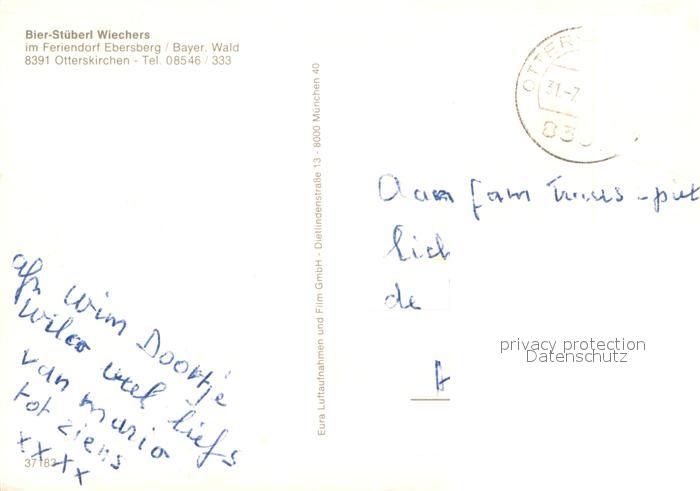 Bier-Stüberl Wiechers
im Feriendorf Ebersberg / Bayer. Wald
8391 Otterskirchen - Tel. 08546 / 333
Eura Luftaufnahmen und Film GmbH - Dietlindenstraße 13 - 8000 München 40
OTTERS
31.-7.
839
Aan fam
de
privacy protection
Datenschutz
afz Wim Doortje
Wilco veel liefs
van mario
tot ziens
xxxx
37183